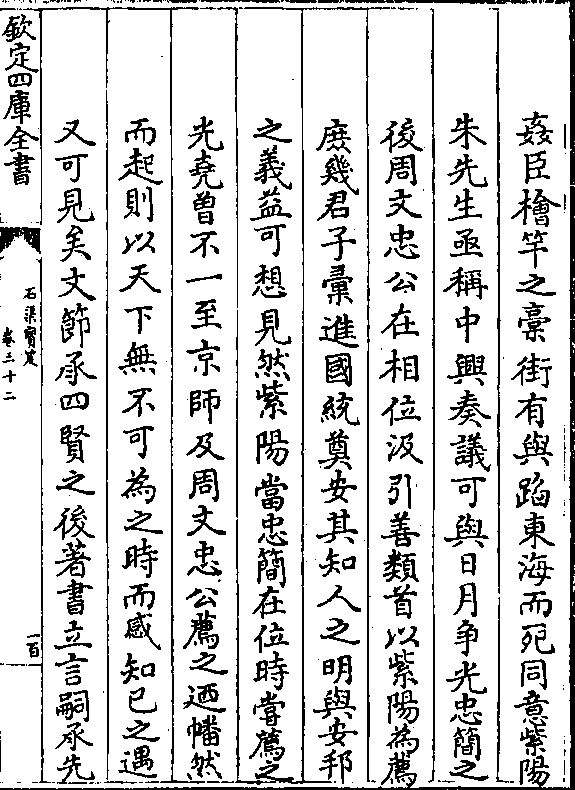 姦臣檜竿之藁街有與蹈東海而死同意紫陽
朱先生亟稱中興奏議可與日月争光忠簡之
後周文忠公在相位汲引善類首以紫陽為薦
庶幾君子彚進國統奠安其知人之明與安邦
之義益可想見然紫陽當忠簡在位時嘗薦之
光堯曾不一至京師及周文忠公薦之迺幡然
而起則以天下無不可為之時而感知已之遇
又可見矣文節承四賢之後著書立言嗣承先
欽定四庫全書
石渠寳笈
卷三十二
一百